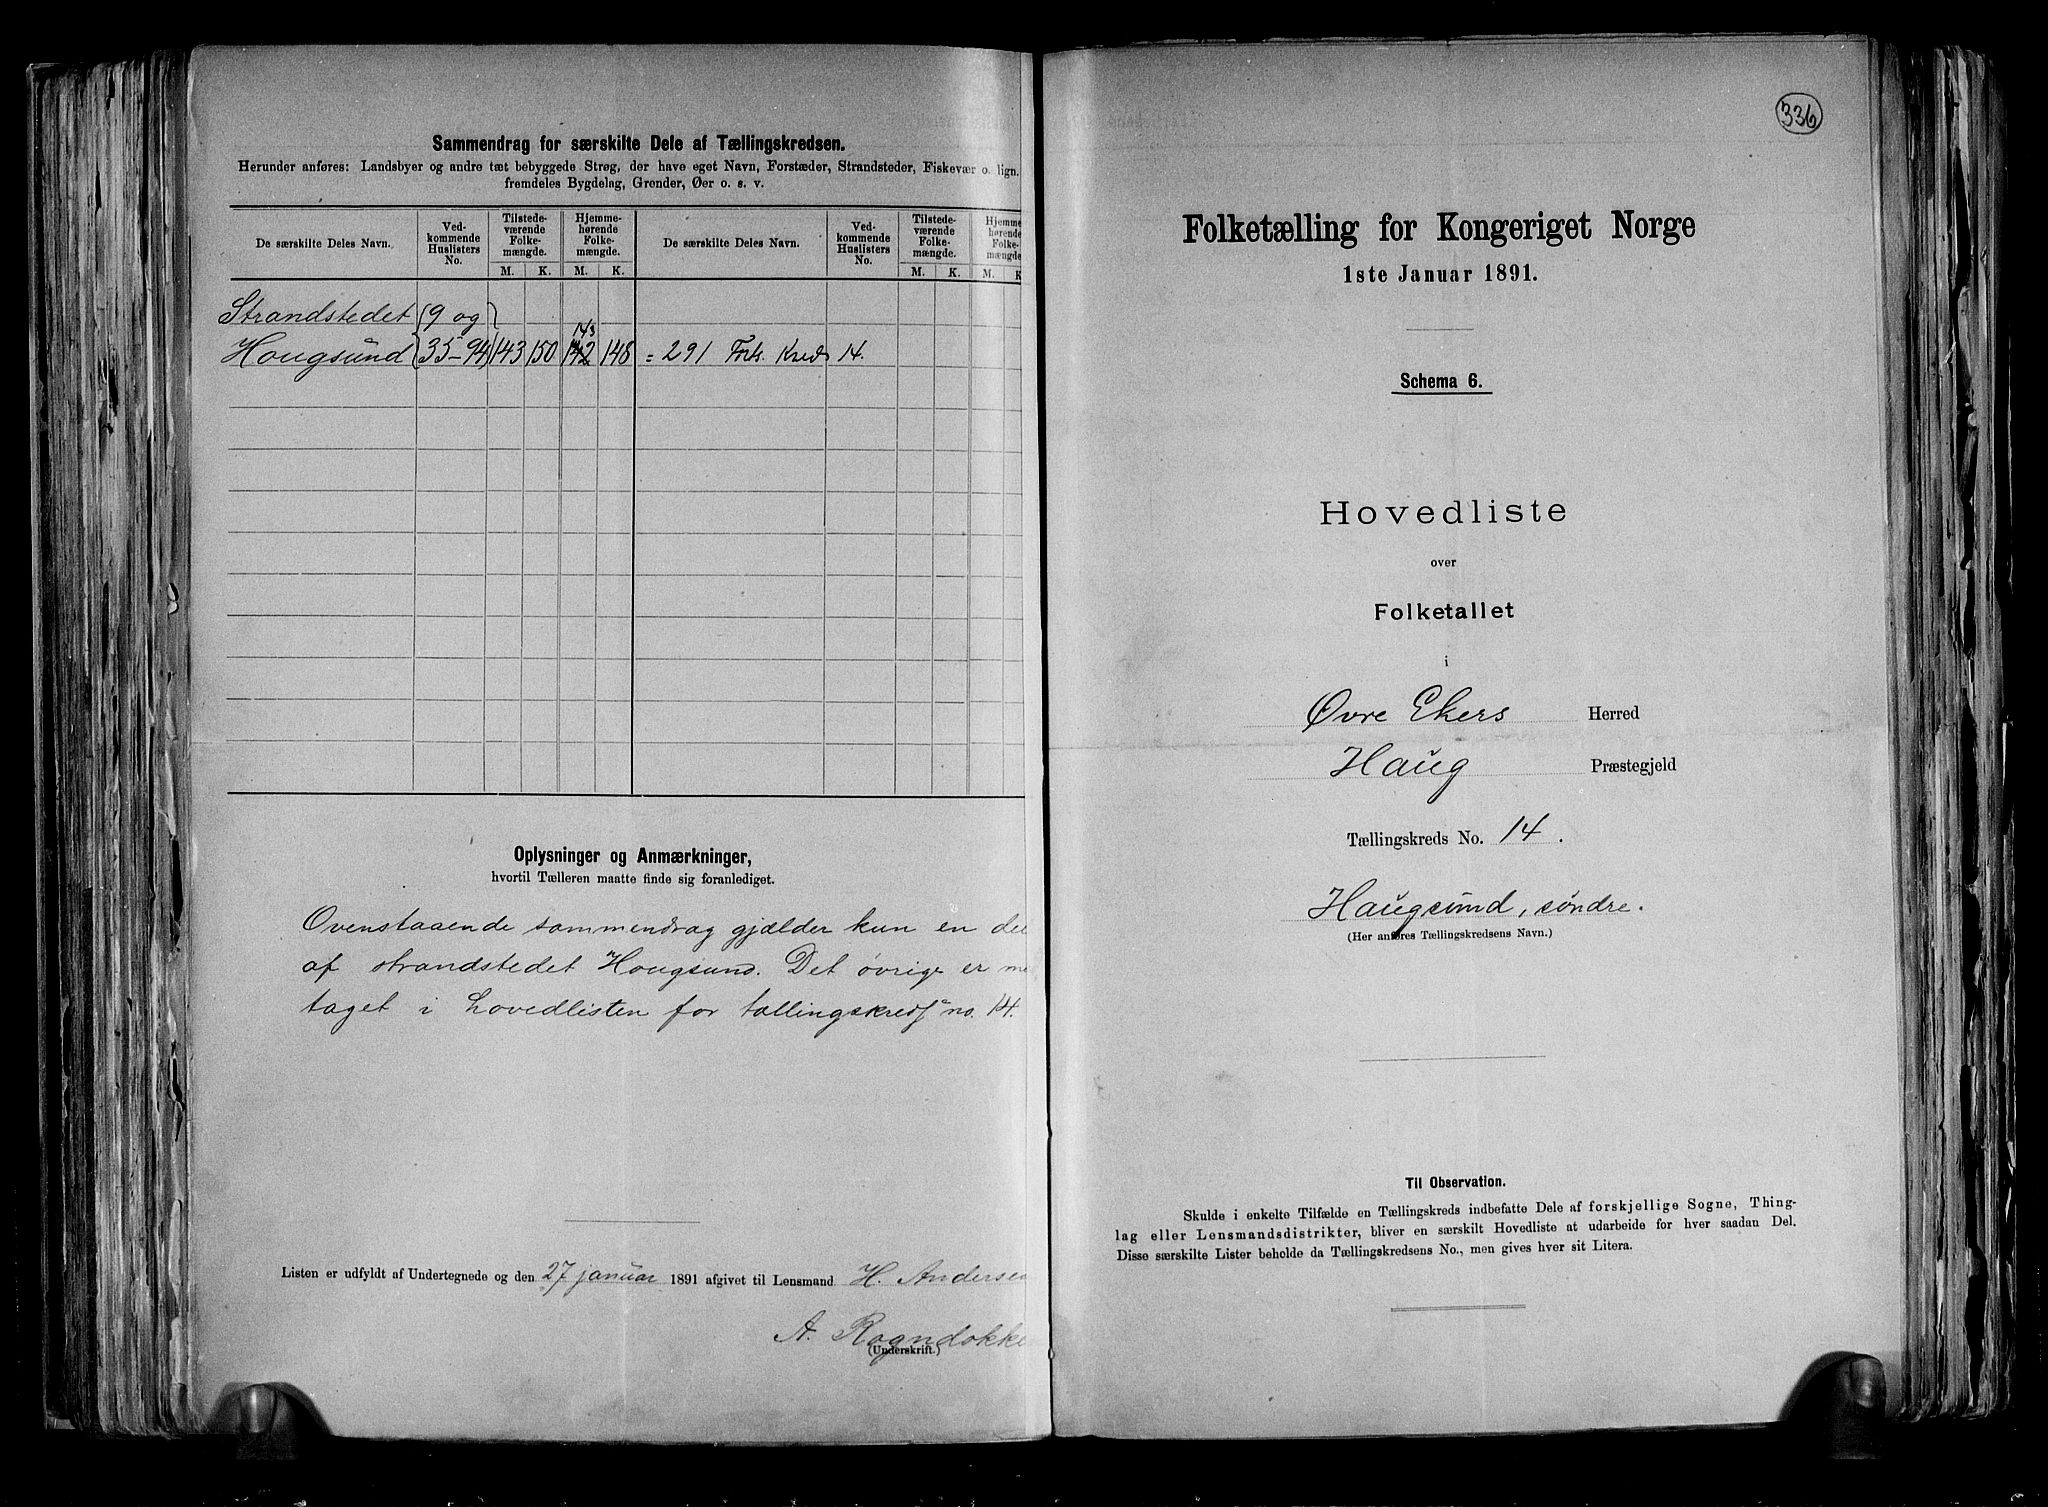 Sammendrag for særskilte Dele af Tællingskredsen.
Herunder anføres: Landsbyer og andre tæt bebyggede Strøg, der have eget Navn, Forstæder, Strandsteder, Fiskevær o. lign.
fremdeles Bygdelag, Grender, Øer o. s. v.
De særskilte Deles Navn. Ved-kommende Huslisters No. Tilstede-værende Folke-mængde. Hjemme-hørende Folke-mængde. De særskilte Deles Navn. Ved-kommende Huslisters No. Tilstede-værende Folke-mængde. Hjemme-hørende Folke-mængde
M. K. M. K. M. K. M. K
Strandstedet 9 og
143
Hougsund 35-94 143 150 142 148 = 291 Forts. Kreds 14.
Oplysninger og Anmærkninger,
hvortil Tælleren maatte finde sig foranlediget.
Ovenstaaende sammendrag gjælder kun en del
af strandstedet Hougsund. Det øvrige er me
taget i hovedlisten for tællingskreds no. 14.
Listen er udfyldt af Undertegnede og den 27 januar 1891 afgivet til Lensmand H. Andersen
A. Rogndokke
(Underskrift.)
336
Folketælling for Kongeriget Norge
1ste Januar 1891.
Schema 6.
Hovedliste
over
Folketallet
i
Øvre Ekers Herred
Haug Præstegjeld
Tællingskreds No. 14.
Haugsund, søndre.
(Her anføres Tællingskredsens Navn.)
Til Observation.
Skulde i enkelte Tilfælde en Tællingskreds indbefatte Dele af forskjellige Sogne, Thing-
lag eller Lensmandsdistrikter, bliver en særskilt Hovedliste at udarbeide for hver saadan Del.
Disse særskilte Lister beholde da Tællingskredsens No., men gives hver sit Litera.